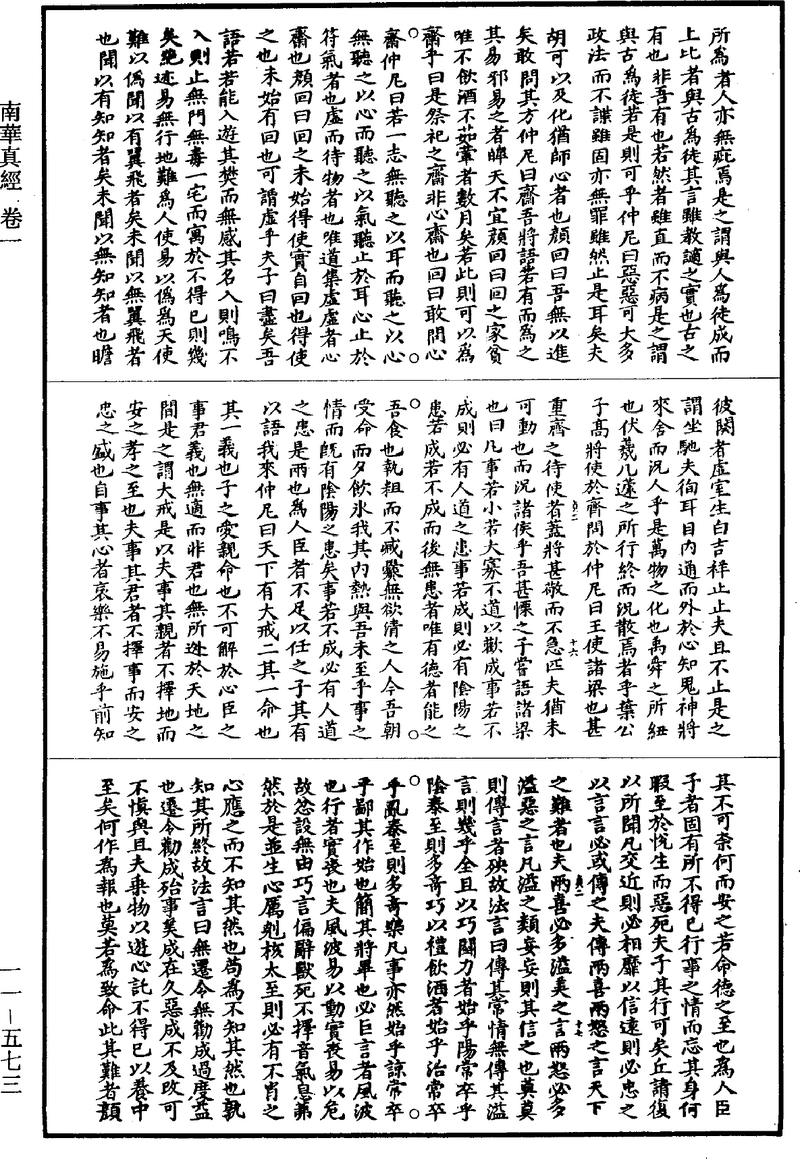 所為者人亦無疵焉是之謂與人為徒成而
上比者與古為徒其言雖教讁之實也古之
有也非吾有也若然者雖直而不病是之謂
與古為徒若是則可乎仲尼曰惡惡可大多
政法而不諜雖固亦無罪雖然止是耳矣夫
胡可以及化猶師心者也顏回曰吾無以進
矣敢問其方仲尼曰齋吾將語若有而為之
其易邪易之者皞天不宜顏回曰回之家貧
唯不飲酒不茹葷者數月矣若此則可以為
齋乎曰是祭祀之齋非心齋也回曰敢問心
齋仲尼曰若一志無聽之以耳而聽之以心
無聽之以心而聽之以氣聽止於耳心止於
符氣者也虛而待物者也唯道集虛虛者心
齋也顏回曰回之未始得使實自回也得使
之也未始有回也可謂虛乎夫子曰盡矣吾
語若若能入遊其樊而無感其名入則鳴不
入則止無門無毒一宅而寓於不得已則幾
矣絕迹易無行地難為人使易以偽為天使
難以偽聞以有翼飛者矣未聞以無翼飛者
也聞以有知知者矣未聞以無知知者也瞻
彼闋者虛室生白吉祥止止夫且不止是之
謂坐馳夫徇耳目內通而外於心知鬼神將
來舍而況人乎是萬物之化也禹舜之所紐
也伏羲几蘧之所行終而況散焉者乎葉公
子高將使於齊問於仲尼曰王使諸梁也甚
重齊之待使者蓋將甚敬而不急匹夫猶未
十六
可動也而況諸侯乎吾甚慄之子嘗語諸梁
也曰凡事若小若大寡不道以歡成事若不
成則必有人道之患事若成則必有陰陽之
患若成若不成而後無患者唯有德者能之
吾食也執粗而不臧爨無欲清之人今吾朝
受命而夕飲氷我其內熱與吾未至乎事之
情而既有陰陽之患矣事若不成必有人道
之患是兩也為人臣者不足以任之子其有
以語我來仲尼曰天下有大戒二其一命也
其一義也子之愛親命也不可解於心臣之
事君義也無適而非君也無所逃於天地之
間是之謂大戒是以夫事其親者不擇地而
安之孝之至也夫事其君者不擇事而安之
忠之盛也自事其心者哀樂不易施乎前知
其不可柰何而安之若命德之至也為人臣
子者固有所不得已行事之情而忘其身何
暇至於恱生而惡死夫子其行可矣丘請復
以所聞凡交近則必相靡以信遠則必忠之
以言言必或傳之夫傳兩喜兩怒之言天下
十七
之難者也夫兩喜必多溢美之言兩怒必多
溢惡之言凡溢之類妄妄則其信之也莫莫
則傳言者殃故法言曰傳其常情無傳其溢
言則幾乎全且以巧鬭力者始乎陽常卒乎
陰泰至則多奇巧以禮飲酒者始乎治常卒
乎亂泰至則多奇樂凡事亦然始乎諒常卒
乎鄙其作始也簡其將畢也必巨言者風波
也行者實喪也夫風波易以動實喪易以危
故忿設無由巧言偏辭獸死不擇音氣息茀
然於是並生心厲剋核太至則必有不肖之
心應之而不知其然也苟為不知其然也孰
知其所終故法言曰無遷令無勸成過度益
也遷令勸成殆事美成在久惡成不及改可
不慎與且夫乘物以遊心託不得已以養中
至矣何作為報也莫若為致命此其難者顏
南華真經 卷一
一一-五七三